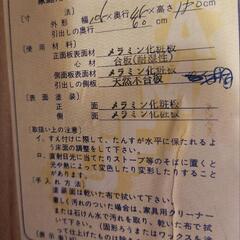 寸法
外形 幅106×奥行46×高さ170cm
引出しの奥行 60cm
使用材料
正面板表面材 メラミン化粧板
心材 合板(耐湿性)
側面板表面材 メラミン化粧板
天然木合板
表面塗装
正面板表面材 メラミン化粧板
側面板表面材 メラミン化粧板
【取扱い上の注意】
イ、すえ付けに際して、たんすが水平に保たれるよう
床面の調整をして下さい。
ロ、直射日光に当てたりストーブ等のそばに置くと
元々熱によって変色したり変形したりすること
【手入れ方法】
塗装面は乾いた布で拭いて下さい。
激しく汚れのついた場合は、家具用クリーナー
または石けん水で汚れを取り、乾いた布で拭
って下さい。(固形ろうまたはワックスを塗
って仕上げたものは